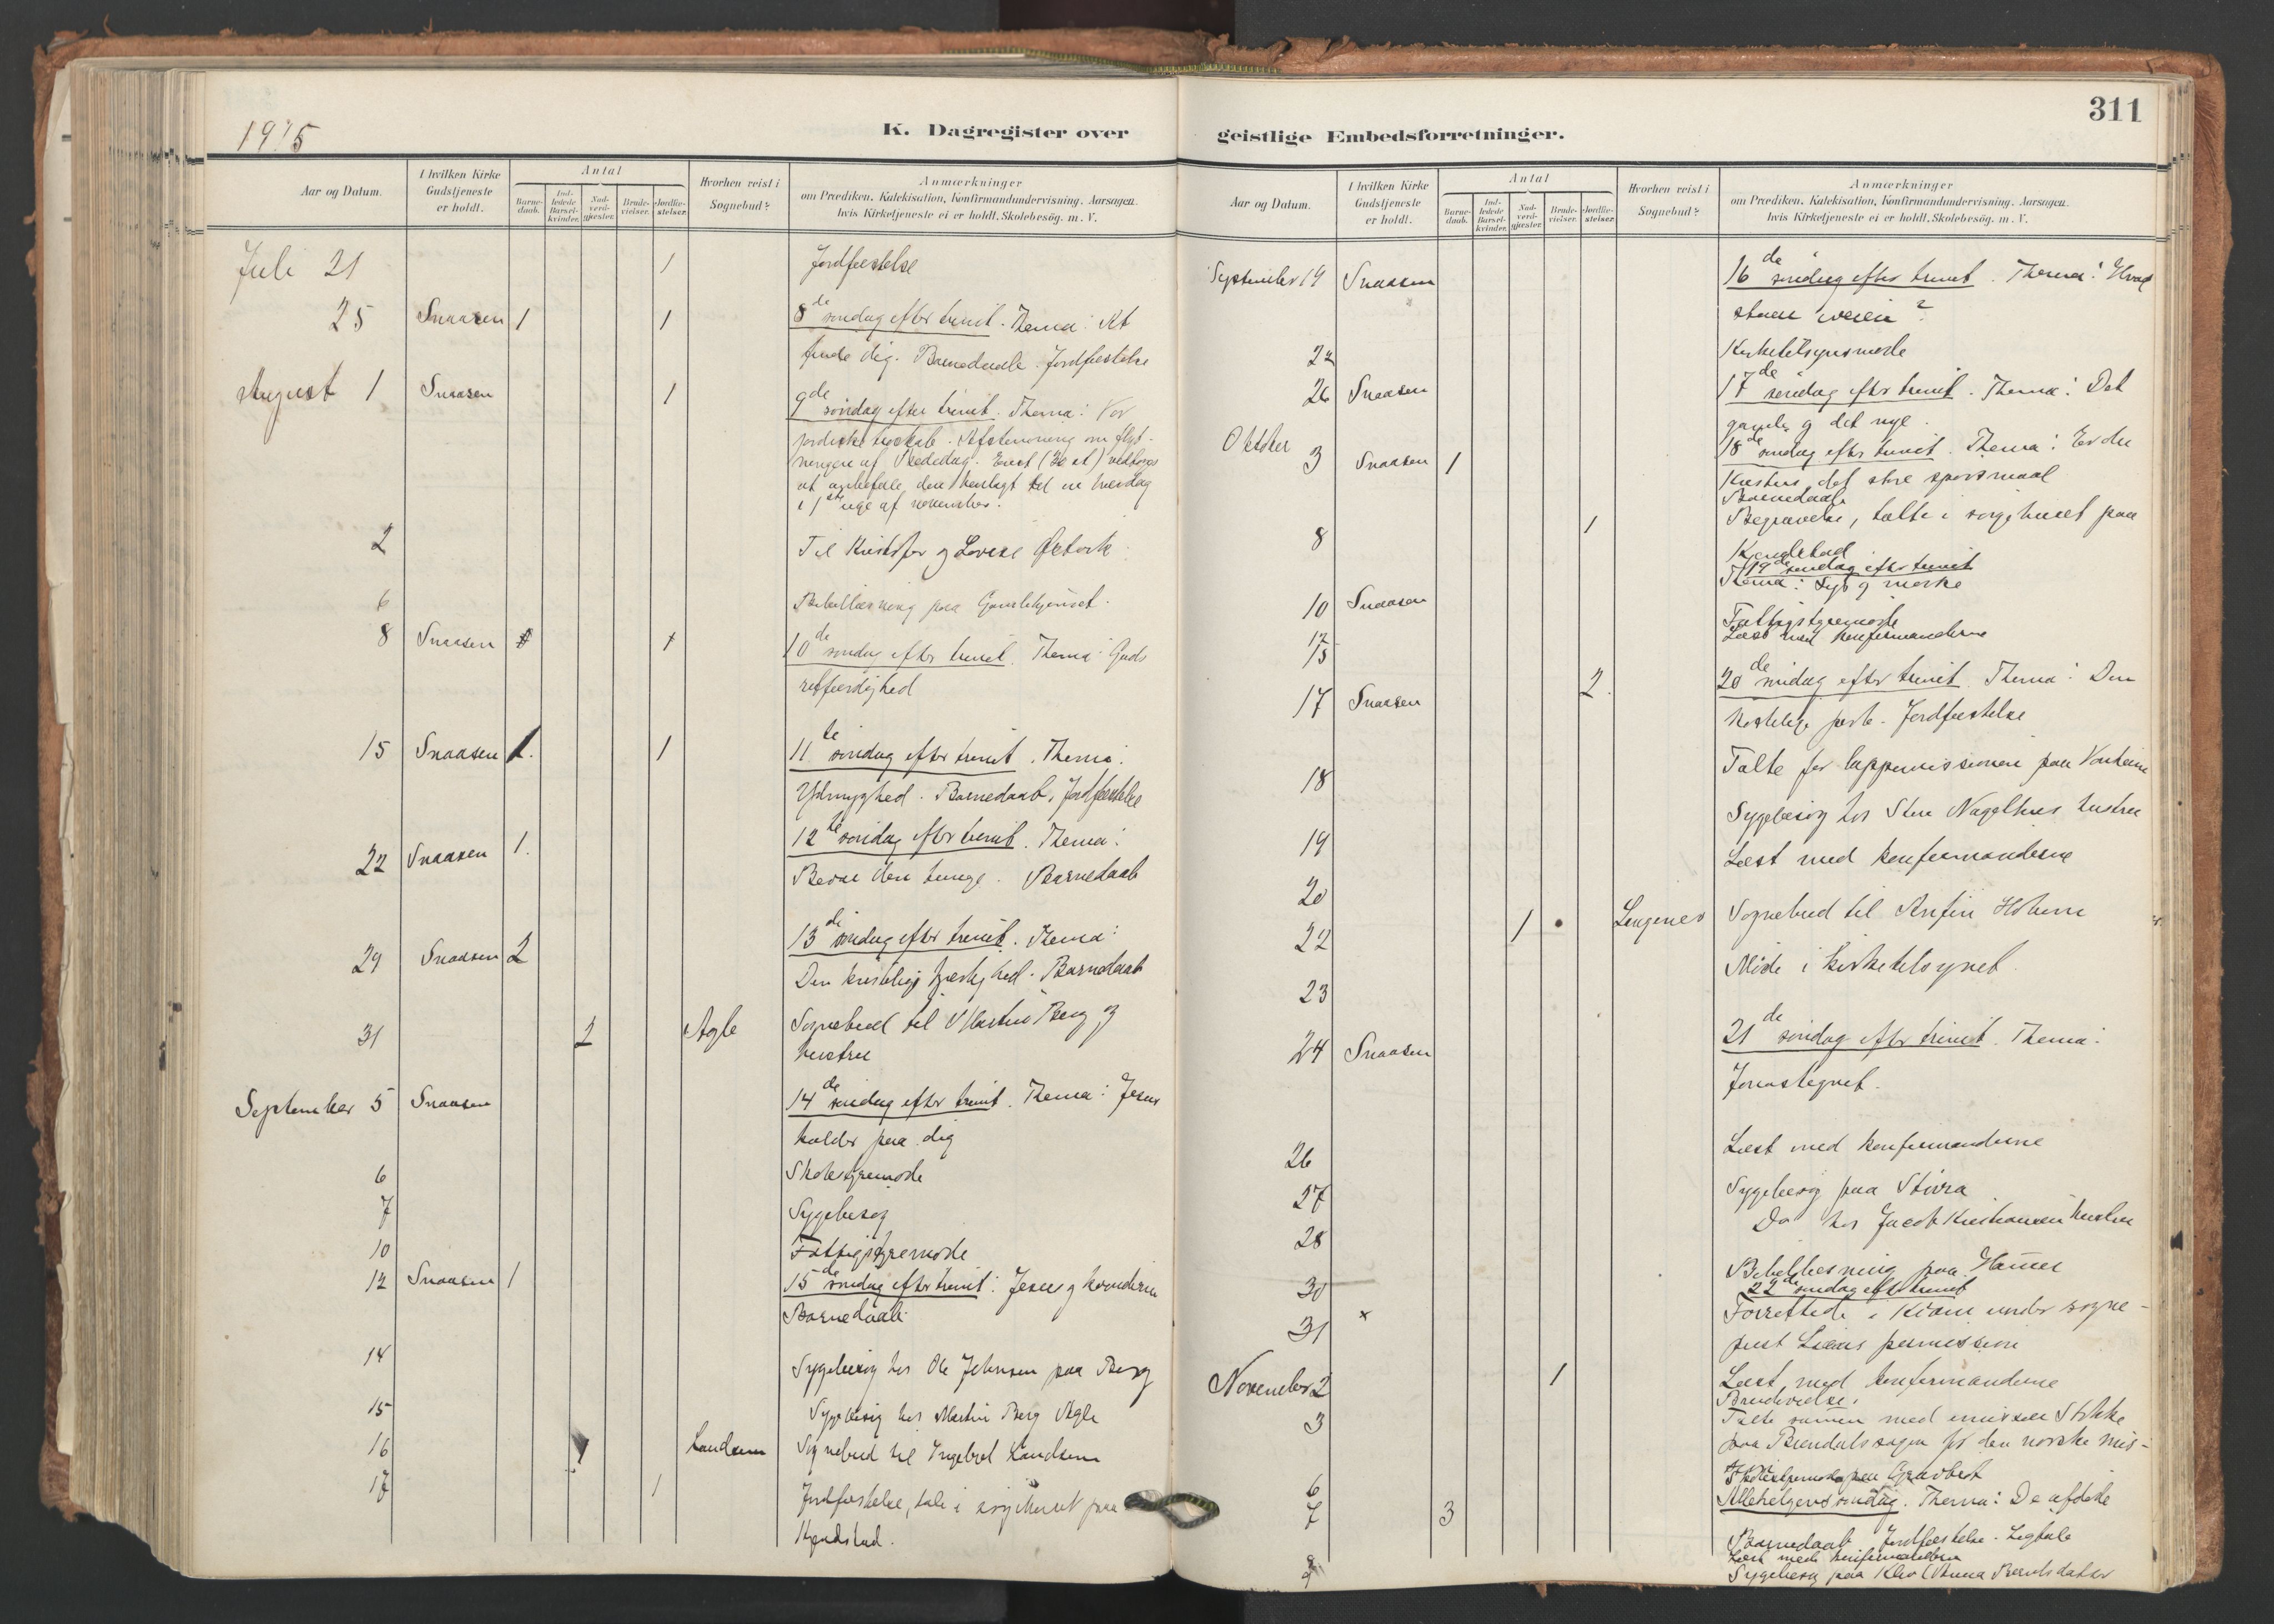 311
1915
K. Dagregister over
geistlige Embedsforretninger.
Aar og Datum.
I hvilken Kirke Gudstjeneste er holdt.
Antal
Barnedaab.
Indledede Barselkvinder.
Nadverdgjester.
Brudevielser.
Jordfæstelser.
Hvorhen reist i Sognebud?
Anmærkninger
om Prædiken, Katekisation, Konfirmandundervisning, Aarsagen,
hvis Kirketjeneste ei er holdt, Skolebesøg, m. V.
Juli 21 1 Jordfæstelse
25 Snaasen 1 1 8de søndag efter trinit. Thema: At
dig. Barnedaab. Jordfæstelse
August 1 Snaasen 1 9de søndag efter trinit. Thema: Vor
jordiske . Afstemning om flyt-
ningen af Bededag. vedtoges
at anbefale den henlagt til en hverdag
i 1ste uge af november.
2 Til Kristofer og Lovise
6 Bibellæsning paa Gamlehjemmet.
8 Snaasen 1 10de søndag efter trinit. Thema: Guds
retfærdighed
15 Snaasen 1. 1 11te søndag efter trinit. Thema:
Ydmyghed. Barnedaab, Jordfæstelse
22 Snaasen 1. 12te søndag efter trinit. Thema:
Bevar den tunge. Barnedaab
29 Snaasen 2 13de søndag efter trinit. Thema:
Den kristelige kjærlighed. Barnedaab
31 2 Agle Sognebud til Martin Berg og
hustru
September 5 Snaasen 14de søndag efter trinit. Thema: Jesus
kalder paa dig
6 Skolestyremøde
7 Sygebesøg
10 Fattigstyremøde
12 Snaasen 1 15de søndag efter trinit: Jesus og kvinderne
Barnedaab.
14 Sygebesøg hos Ole Johnsen paa Berg
15 Sygebesøg hos Martin Berg Agle
16 1 Landsem Sognebud til Ingebret Landsem
17 1 Jordfæstelse, tale i sørgehuset paa
Kjendstad.
Aar og Datum.
I hvilken Kirke Gudstjeneste er holdt.
Antal
Barnedaab.
Indledede Barselkvinder.
Nadverdgjester.
Brudevielser.
Jordfæstelser.
Hvorhen reist i Sognebud?
Anmærkninger
om Prædiken, Katekisation, Konfirmandundervisning, Aarsagen,
hvis Kirketjeneste ei er holdt, Skolebesøg, m. V.
September 19 Snaasen 16de søndag efter trinit. Thema: Hvad
veien?
22 Kirketilsynsmøde
26 Snaasen 17de søndag efter trinit. Thema: Det
gamle og det nye.
Oktober 3 Snaasen 1 18de søndag efter trinit. Thema: Er du
Kristus det store spørsmaal
Barnedaab
8 1 Begravelse, talte i sørgehuset paa
Kjendstad
10 Snaasen 19de søndag efter trinit
Thema: Lys og mørke
12 Fattigstyremøde
15 Læst med konfirmanderne
17 Snaasen 2. 20de søndag efter trinit. Thema: Den
kostelige perle. Jordfæstelse
18 Talte for lappemissionen paa
19 Sygebesøg hos Sten Nagelhus hustru
20 Læst med konfirmanderne
22 1 Sognebud til Anfin
23 Møde i kirketilsynet.
24 Snaasen 21de søndag efter trinit. Thema:
Jonastegnet.
26 Læst med konfirmanderne
27 Sygebesøg paa
28 Do hos Jacob Kristiansen hustru
30 Bibellæsning paa Hammer
31 x 22de søndag efter trinit
Forrettede i Kvam under sogne-
prest permission
November 2 1 Læst med konfirmanderne
Brudevielse.
3 Talte sammen med emissær Stokke
paa for den norske mis-
sion
6 Skolestyremøde paa
7 3 Allehelgenssøndag. Thema: De afdøde
Barnedaab Jordfæstelse. Ligtale
Læst med konfirmanderne
9 Sygebesøg paa (Anna